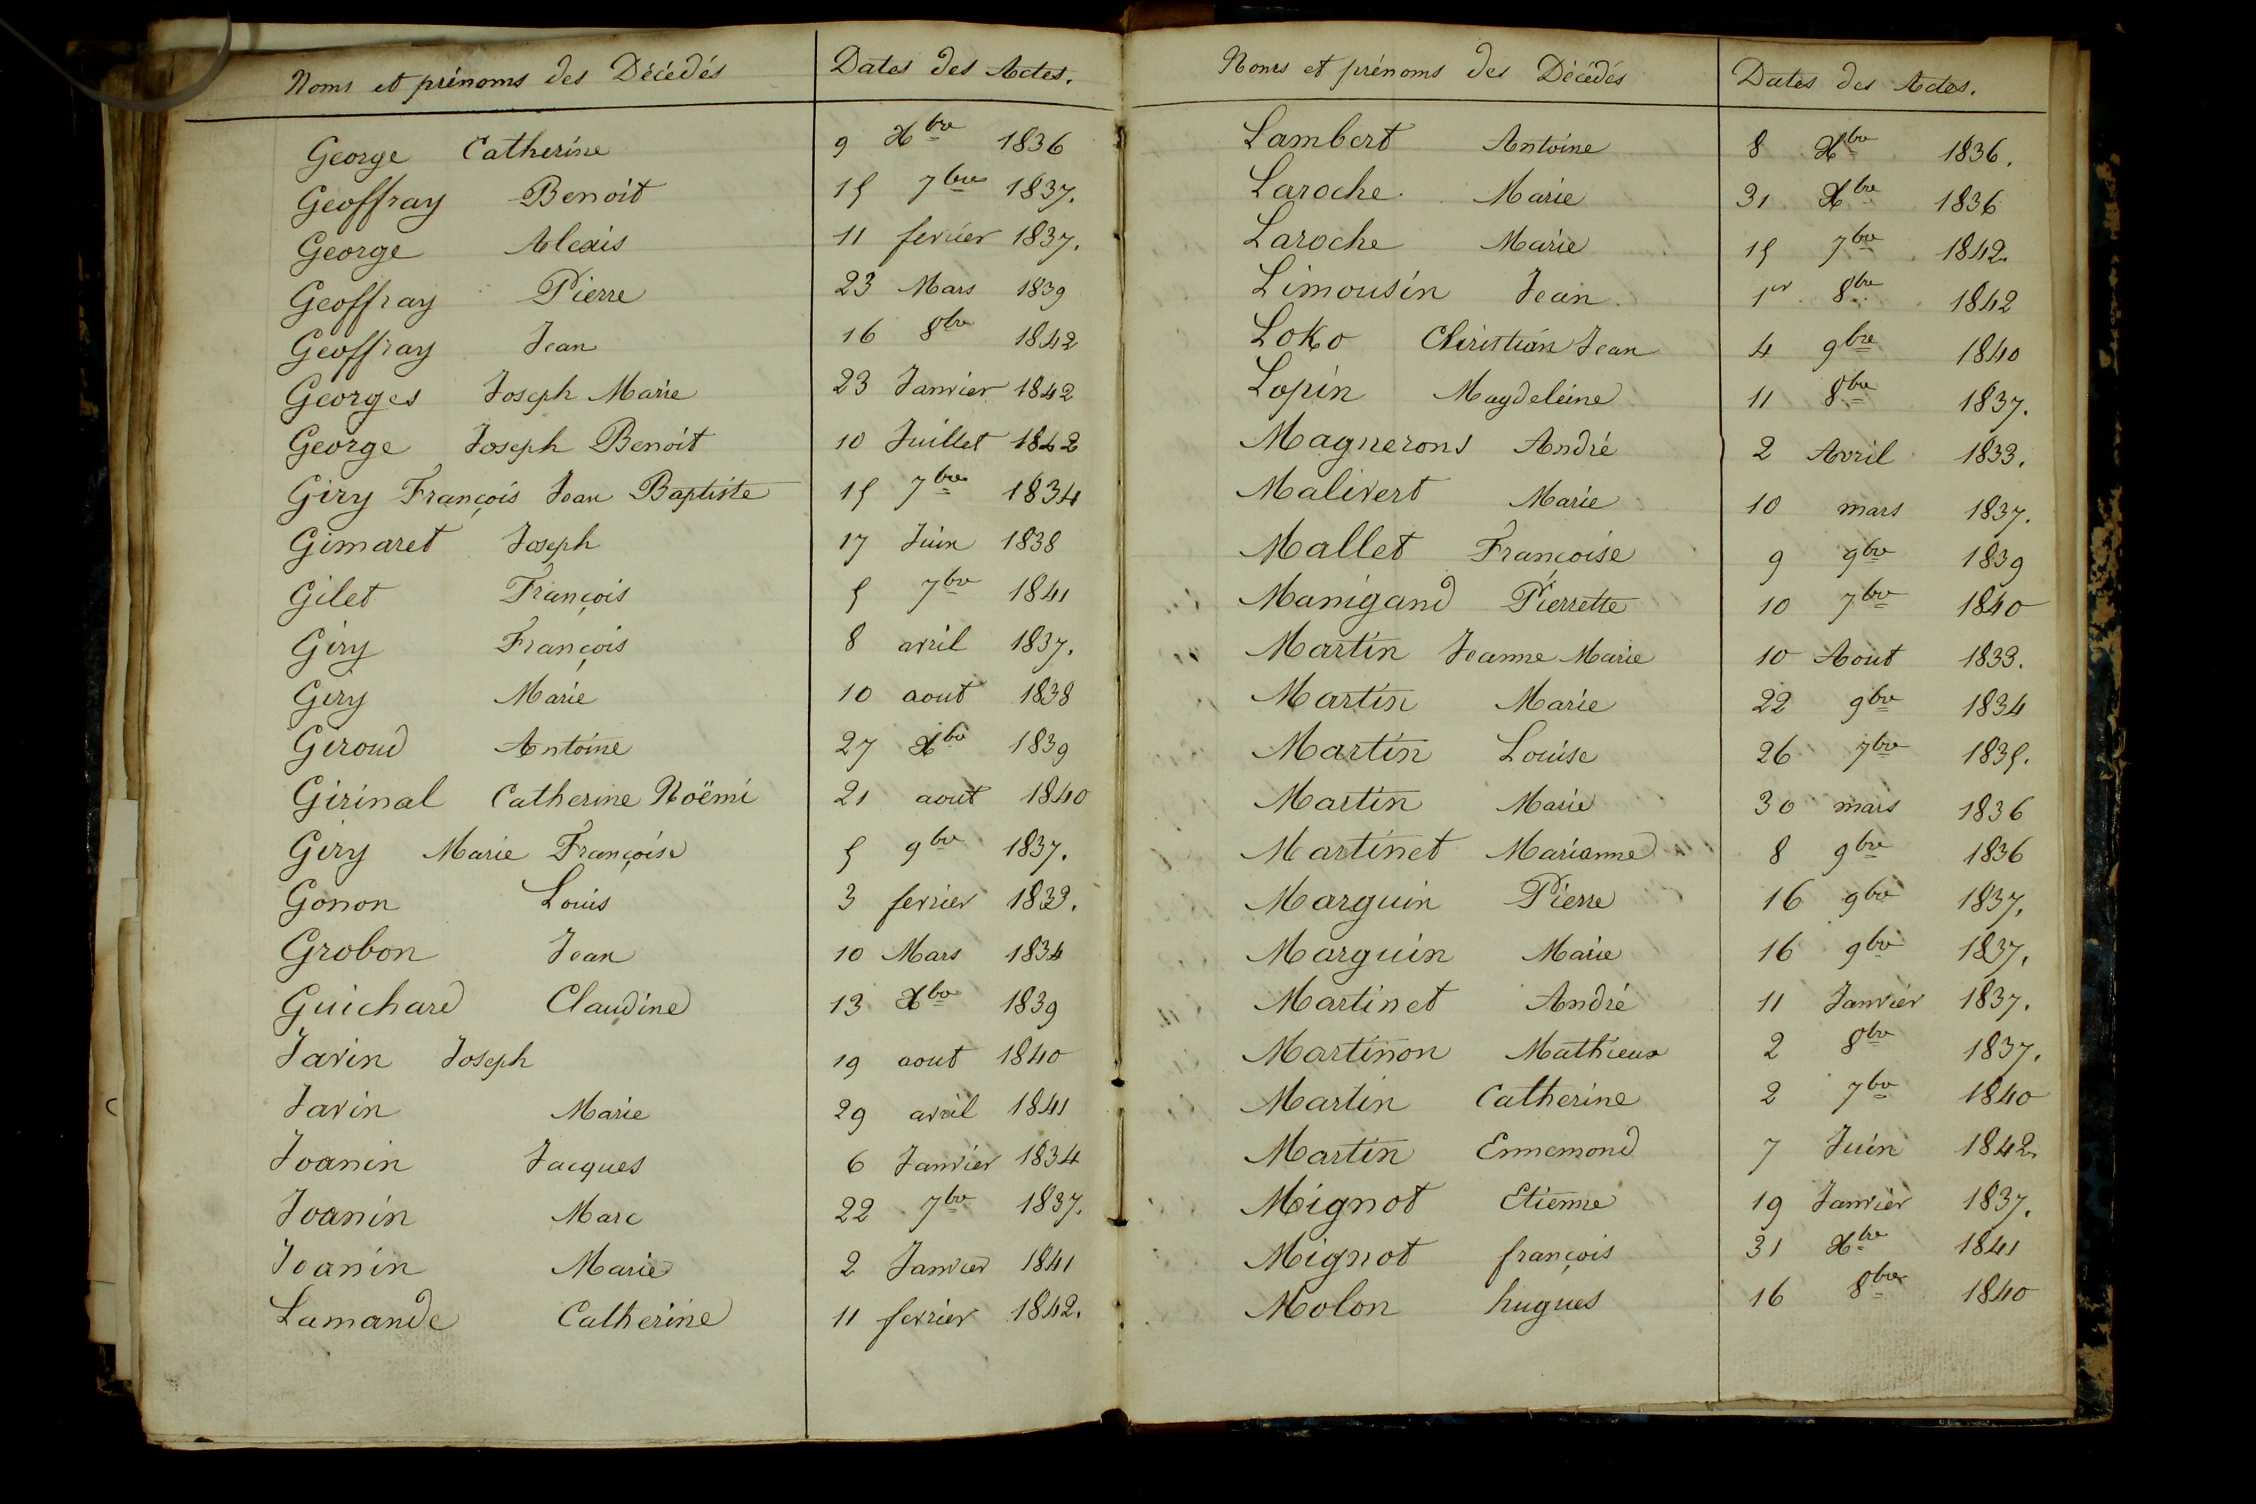 Noms et prénoms des Décédés Dates des Actes.
George Catherine 9 Xbre 1836
Geoffray Benoit 15 7bre 1837.
George Alexis 11 fevrier 1837.
Geoffray Pierre 23 Mars 1839
Geoffray Jean 16 8bre 1842
Georges Joseph Marie 23 Janvier 1842
George Joseph Benoit 10 Juillet 1842
Giry François Jean Baptiste 15 7bre 1834
Gimaret Joseph 17 Juin 1838
Gilet François 5 7bre 1841
Giry François 8 avril 1837.
Giry Marie 10 aout 1838
Giroud Antoine 27 Xbre 1839
Girinal Catherine Noëmi 21 aout 1840
Giry Marie Françoise 5 9bre 1837.
Gonon Louis 3 fevrier 1833.
Grobon Jean 10 Mars 1834
Guichard Claudine 13 Xbre 1839
Javin Joseph 19 aout 1840
Javin Marie 29 avril 1841
Joanin Jacques 6 Janvier 1834
Joanin Marc 22 7bre 1837.
Joanin Marie 2 Janvier 1841
Lamande Catherine 11 fevrier 1842.
Noms et prénoms des Décédés Dates des Actes.
Lambert Antoine 8 Xbre 1836.
Laroche Marie 31 Xbre 1836
Laroche Marie 15 7bre 1842.
Limousin Jean 1er 8bre 1842
Loko Christian Jean 4 9bre 1840
Lopin Magdeleine 11 8bre 1837.
Magnerons André 2 Avril 1833.
Malivert Marie 10 mars 1837.
Mallet Françoise 9 9bre 1839
Manigand Pierrette 10 7bre 1840
Martin Jeanne Marie 10 Aout 1833.
Martin Marie 22 9bre 1834
Martin Louise 26 7bre 1835.
Martin Marie 30 mars 1836
Martinet Marianne 8 9bre 1836
Marguin Pierre 16 9bre 1837.
Marguin Marie 16 9bre 1837.
Martinet André 11 Janvier 1837.
Martinon Mathieux 2 8bre 1837.
Martin Catherine 2 7bre 1840
Martin Ennemond 7 Juin 1842.
Mignot Etienne 19 Janvier 1837.
Mignot françois 31 Xbre 1841
Molon hugues 16 8bre 1840